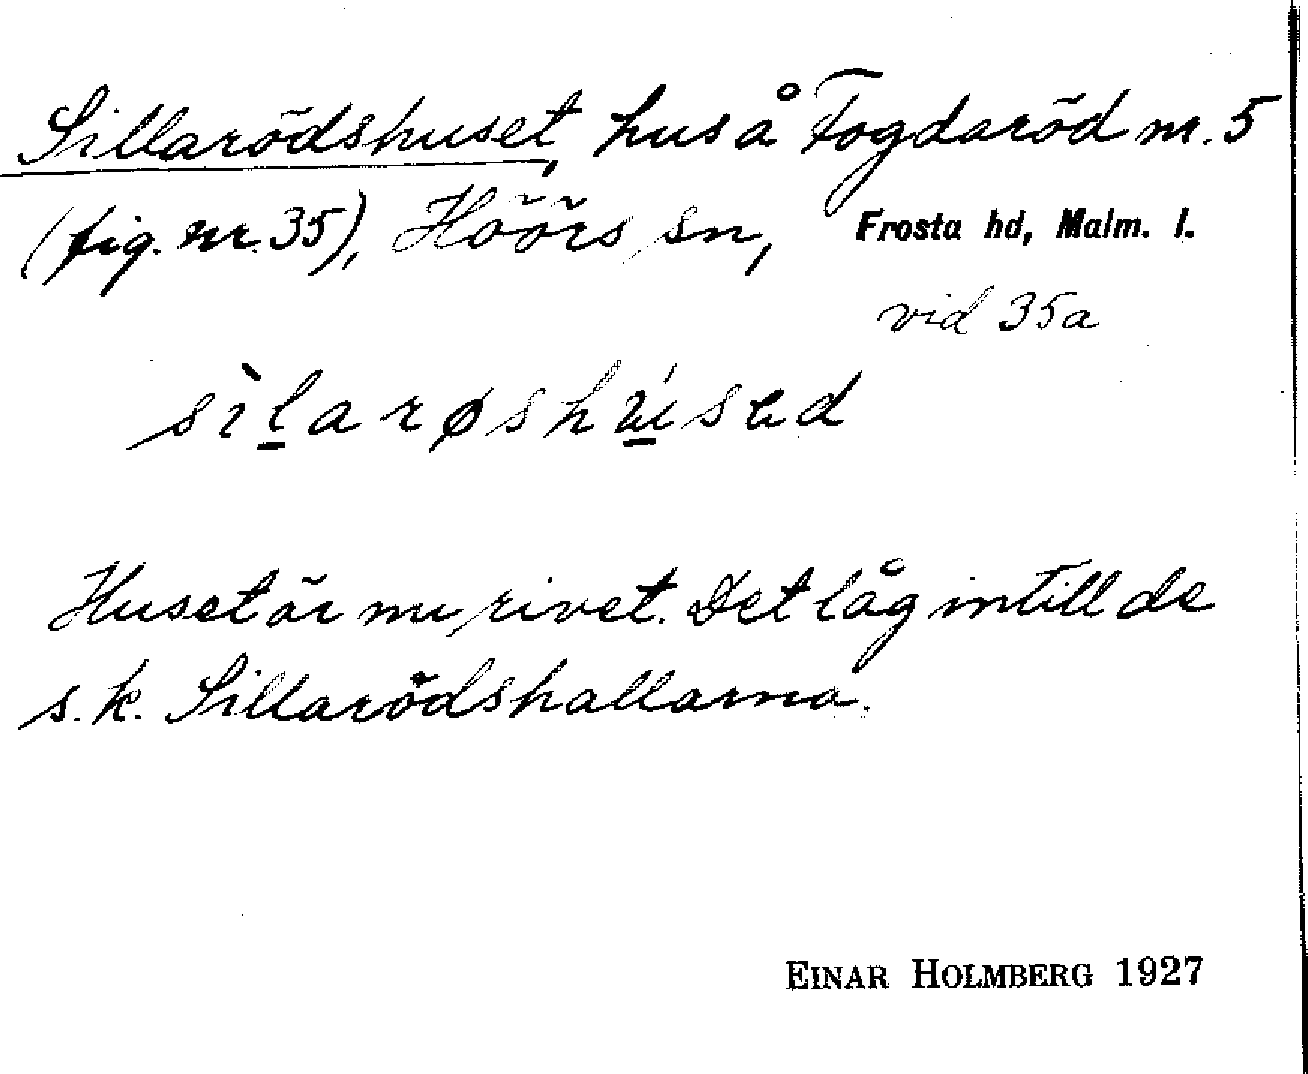 Sillarödshuset, hus å Fogdaröd nr. 5
(fig. nr. 35), Höörs sn, Frosta hd, Malm. l.
vid 35a
sìlarøshúsəd
Huset är nu rivet. Det låg intill de
s.k. Sillarödshallarna.
EINAR HOLMBERG 1927